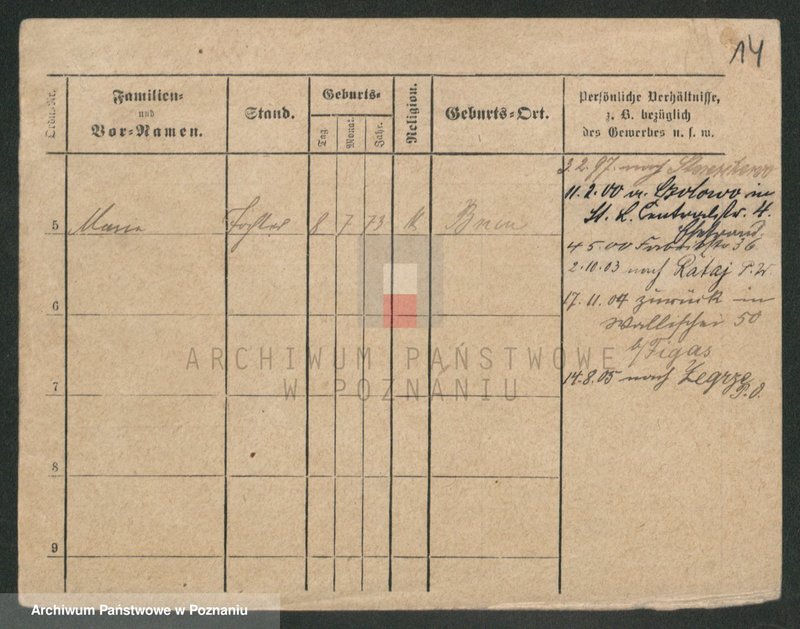 14
Ordn.-Nr.
Familien-
und
Vor-Namen.
Stand.
Geburts-
Tag.
Monat.
Jahr.
Religion.
Geburts-Ort.
Persönliche Verhältnisse,
z. B. bezüglich
des Gewerbes u. s. w.
3.2.97 nach
11.2.00 in
St. L. Centralstr. 4.
5 Maria Tochter 8 7 73 K Bnin
4 5.00 36
2.10.03 nach Rataj P. W.
6
17.11.04 zurück in
Wallischei 50
b/Figas
7
14.8.05 nach Zegrze
P. O.
8
9
ARCHIWUM PAŃSTWOWE
W POZNANIU
Archiwum Państwowe w Poznaniu